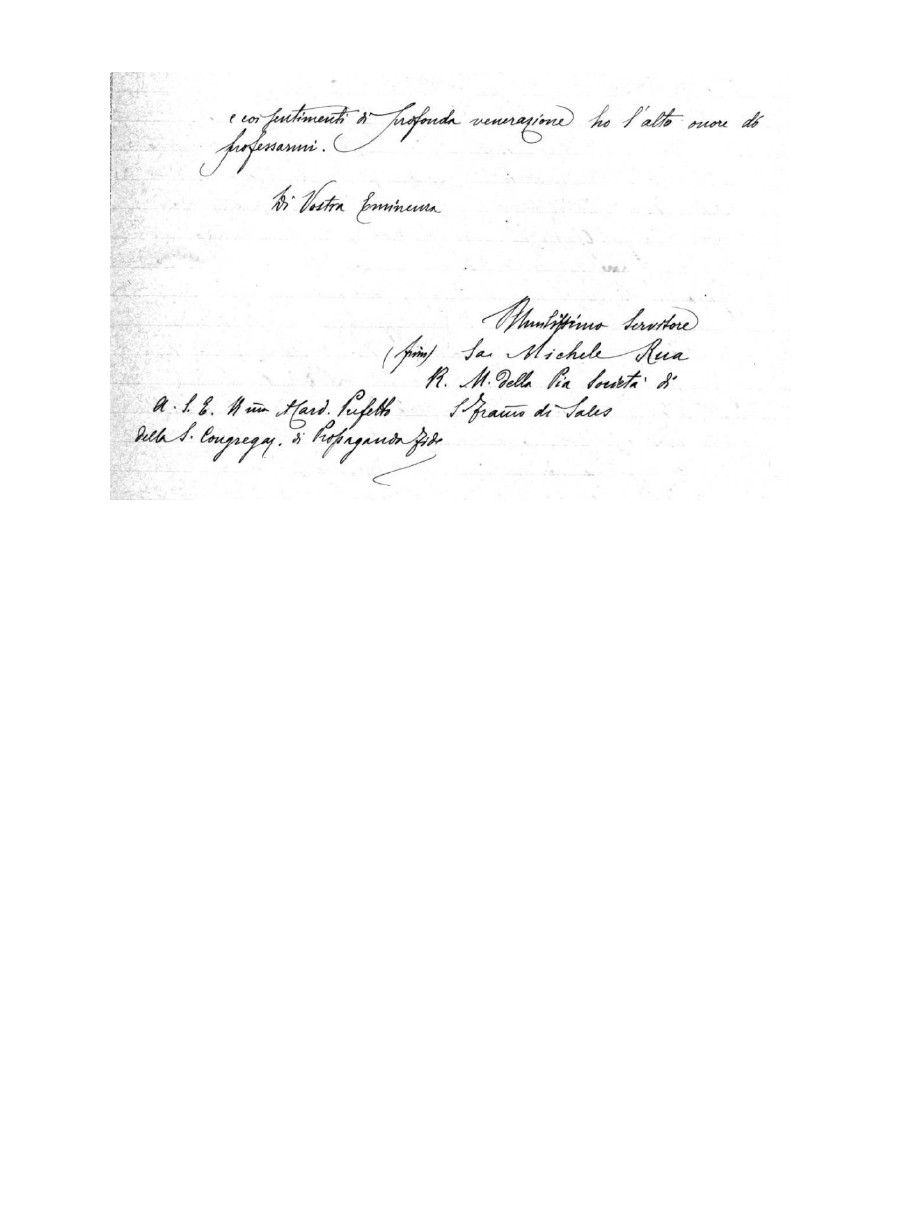 e coi sentimenti di profonda venerazione ho l'alto onore di
professarmi.
Di Vostra Eminenza
Umilissimo Servitore
(firm) Sac. Michele Rua
R. M. della Pia Società di
S. Franco di Sales
A. S. E. Card. Prefetto
della S. Congregaz. di Propaganda Fide